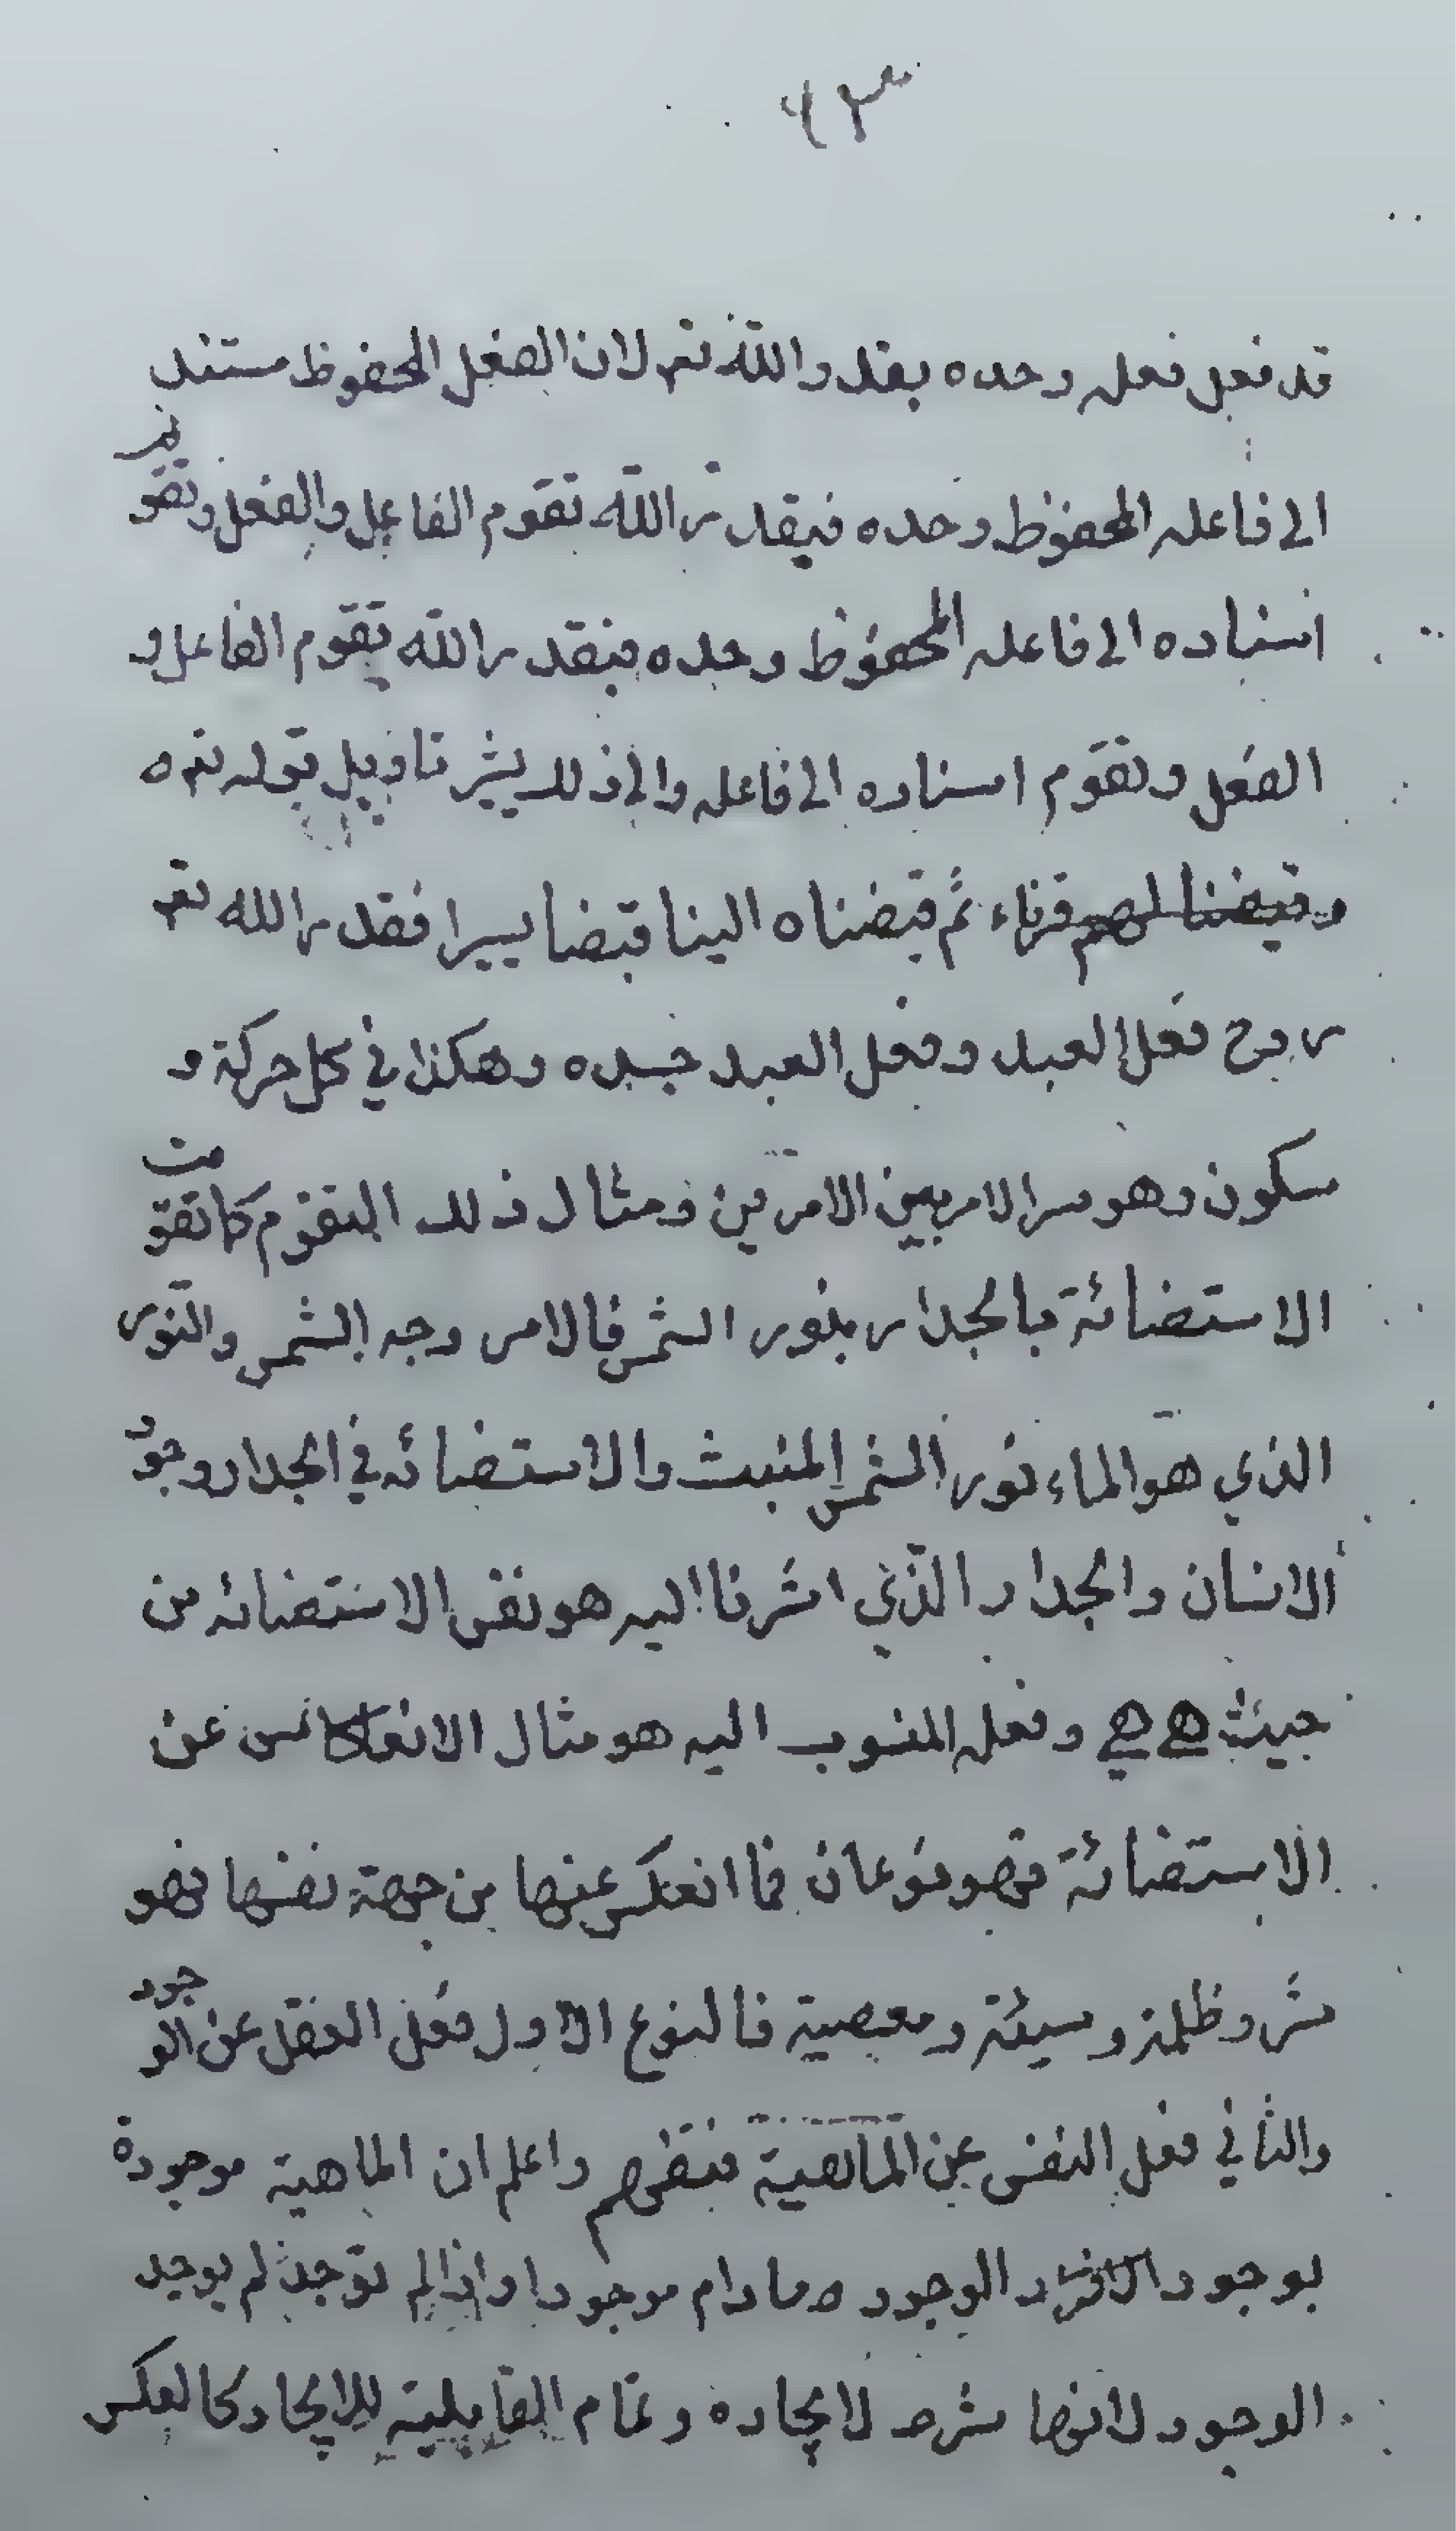 ٦٣
قد فعل فعله وحده بقدر الله تع لان الفعل المحفوظ مستند
الى فاعله المحفوظ وحده فبقدر الله تقوم الفاعل والفعل وتقوم
اسناده الى فاعله المحفوظ وحده فبقدر الله تقوم الفاعل و
الفعل وتقوم اسناده الى فاعله والى ذلك يشير تاويل قوله تع
وقيضنا لهم قرناء ثم قبضناه الينا قبضا يسيرا فقدر الله تع
روح فعل العبد وفعل العبد جسده وهكذا في كل حركة و
سكون وهو سر الامر بين الامرين ومثال ذلك التقوم كما تقومت
الاستضائة بالجدار بنور الشمس فالامر وجه الشمس والنور
الذي هو الماء نور الشمس المنبث والاستضائه في الجدار وجود
الانسان والجدار الذي اشرنا اليه هو نفس الاستضائه من
حيث هي هي وفعله المنسوب اليه هو مثال الانعكاس عن
الاستضائة فهو نوعان فما انعكس عنها من جهة نفسها فهو
شر وظلمة وسيئة ومعصية فالنوع الاول فعل العقل عن الوجود
والثاني فعل النفس عن الماهية فتفهم واعلم ان الماهية موجودة
بوجود الوجود ما دام موجودا واذا لم توجد لم يوجد
الوجود لانها شرط لايجاده وتمام القابلية للايجاد كالعكس